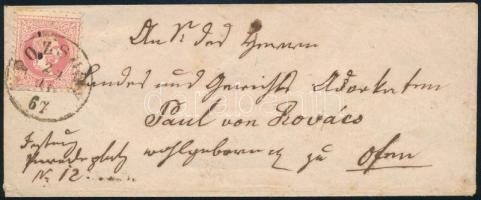 POZSONY
67
An S. des Herrn
Landes und Gerichts Advokaten
Paul von Kovács
wohlgeboren zu Ofen
Festung
Paradeplatz
No. 12.